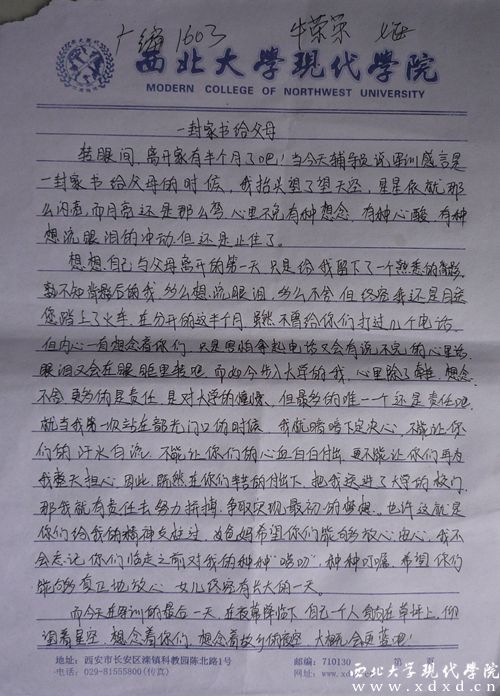 广编1603 牛荣荣
西北大学现代学院
MODERN COLLEGE OF NORTHWEST UNIVERSITY
一封家书给父母
转眼间,离开家有半个月了吧!当今天辅导员说军训感言是
一封家书给父母的时候,我抬头望了望天空,星星依就那
么闪亮,而月亮还是那么弯,心里不免有种想念,有种心酸,有种
想流眼泪的冲动,但还是止住了。
想想自己与父母离开的第一天,只是给我留下了一个熟悉的背影,
却不知背影后的我多么想流眼泪,多么不舍,但终究我还是目送
您踏上了火车,在分开的这半个月,虽然不曾给你们打过几个电话,
但内心一直想念着你们,只是害怕拿起电话又会有说不完的心里话,
眼泪又会在眼眶里转吧。而如今步入大学的我,心里除了牵挂、想念、
不舍,更多的是责任,是对大学的憧憬,但最多的唯一一个还是责任吧。
就当我第一次站在部大门口的时候,我就暗暗下定决心,不能让你
们的汗水白流,不能让你们的心血白白付出,更不能让你们再为
我整天担心,因此,既然在你们辛苦的付出下,把我送进了大学的校门,
那我就有责任去努力拼搏,争取实现最初的梦想,也许这就是
你们给我的精神支柱过,爸妈希望你们能够放心,我不
会忘记你们临走之前对我的种种"唠叨",种种叮嘱,希望你们
能够真正地放心,女儿终究有长大的一天。
而今天在军训的最后一天,在夜幕降临下,自己一个人躺在草坪上,仰
望着星空,想念着你们,想念着故乡的夜空,大概会更蓝吧!
地址:西安市长安区滦镇科教园陈北路1号 邮编:710130 第 页
电话:029-81555800(传真) http://www.xdxd.cn
西北大学现代学院
www.xdxd.cn